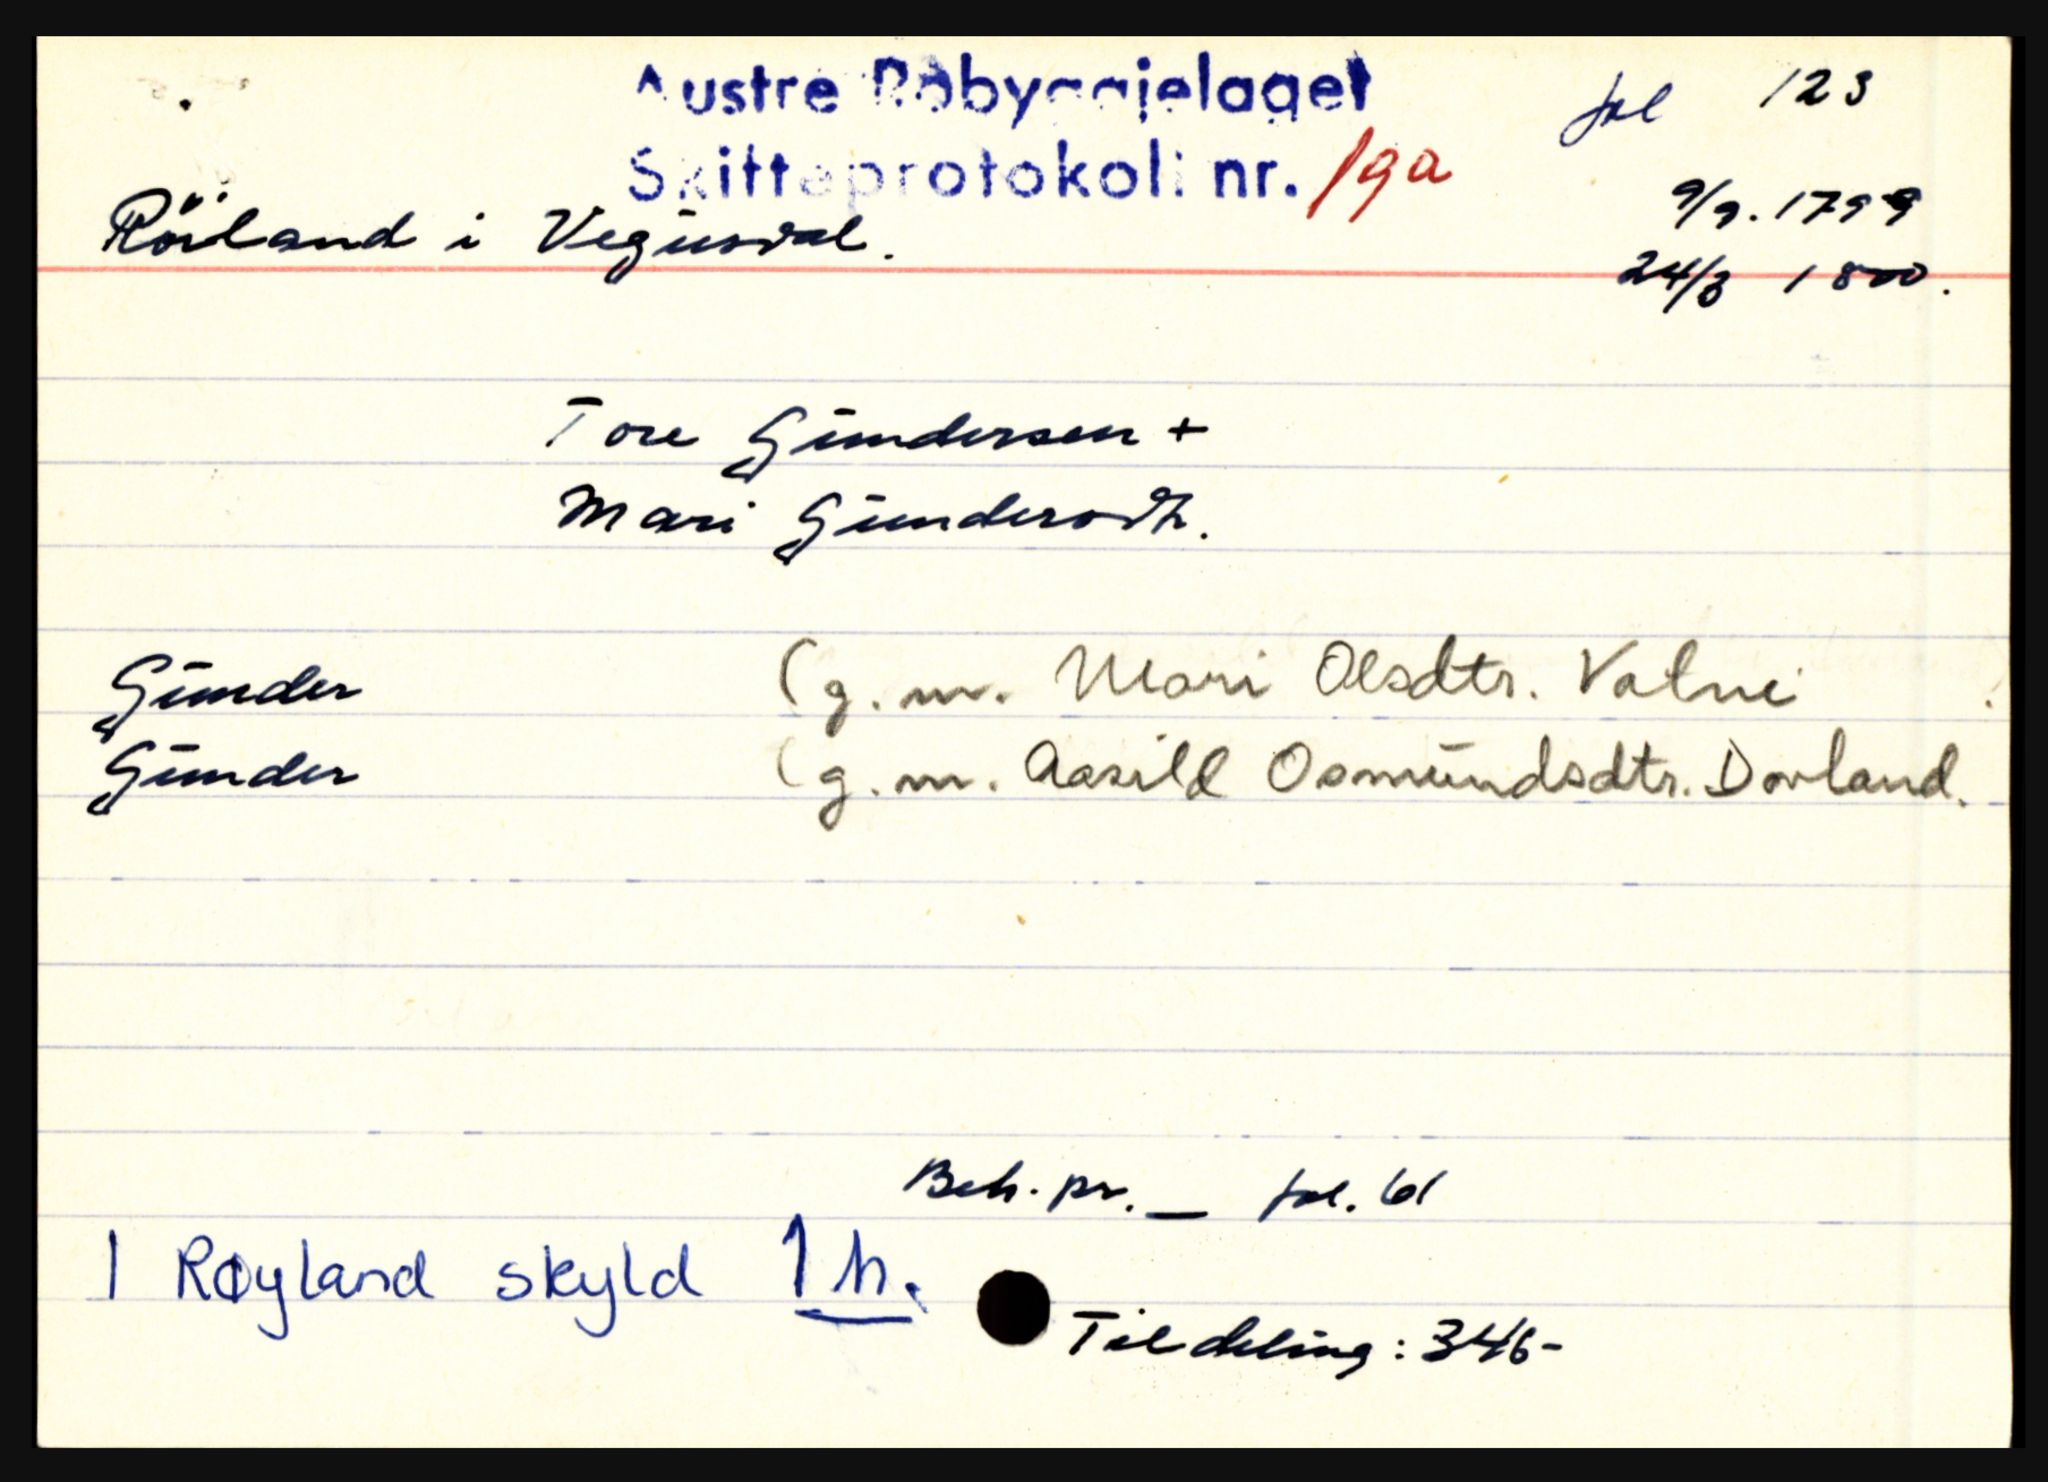 Austre Råbyggjelaget
Skifteprotokoll nr. 19a
fol 123
9/9. 1799
Röiland i Vegusdal.
24/3 1800.
Tore Gundersen +
Mari Gundersdtr.
Gunder (g. m. Mari Olsdtr. Vatne )
Gunder (g. m. Aasild Osmundsdtr. Dovland.
Beh. pr. — fol. 61
I Røyland skyld 1 h.
Til deling: 346-